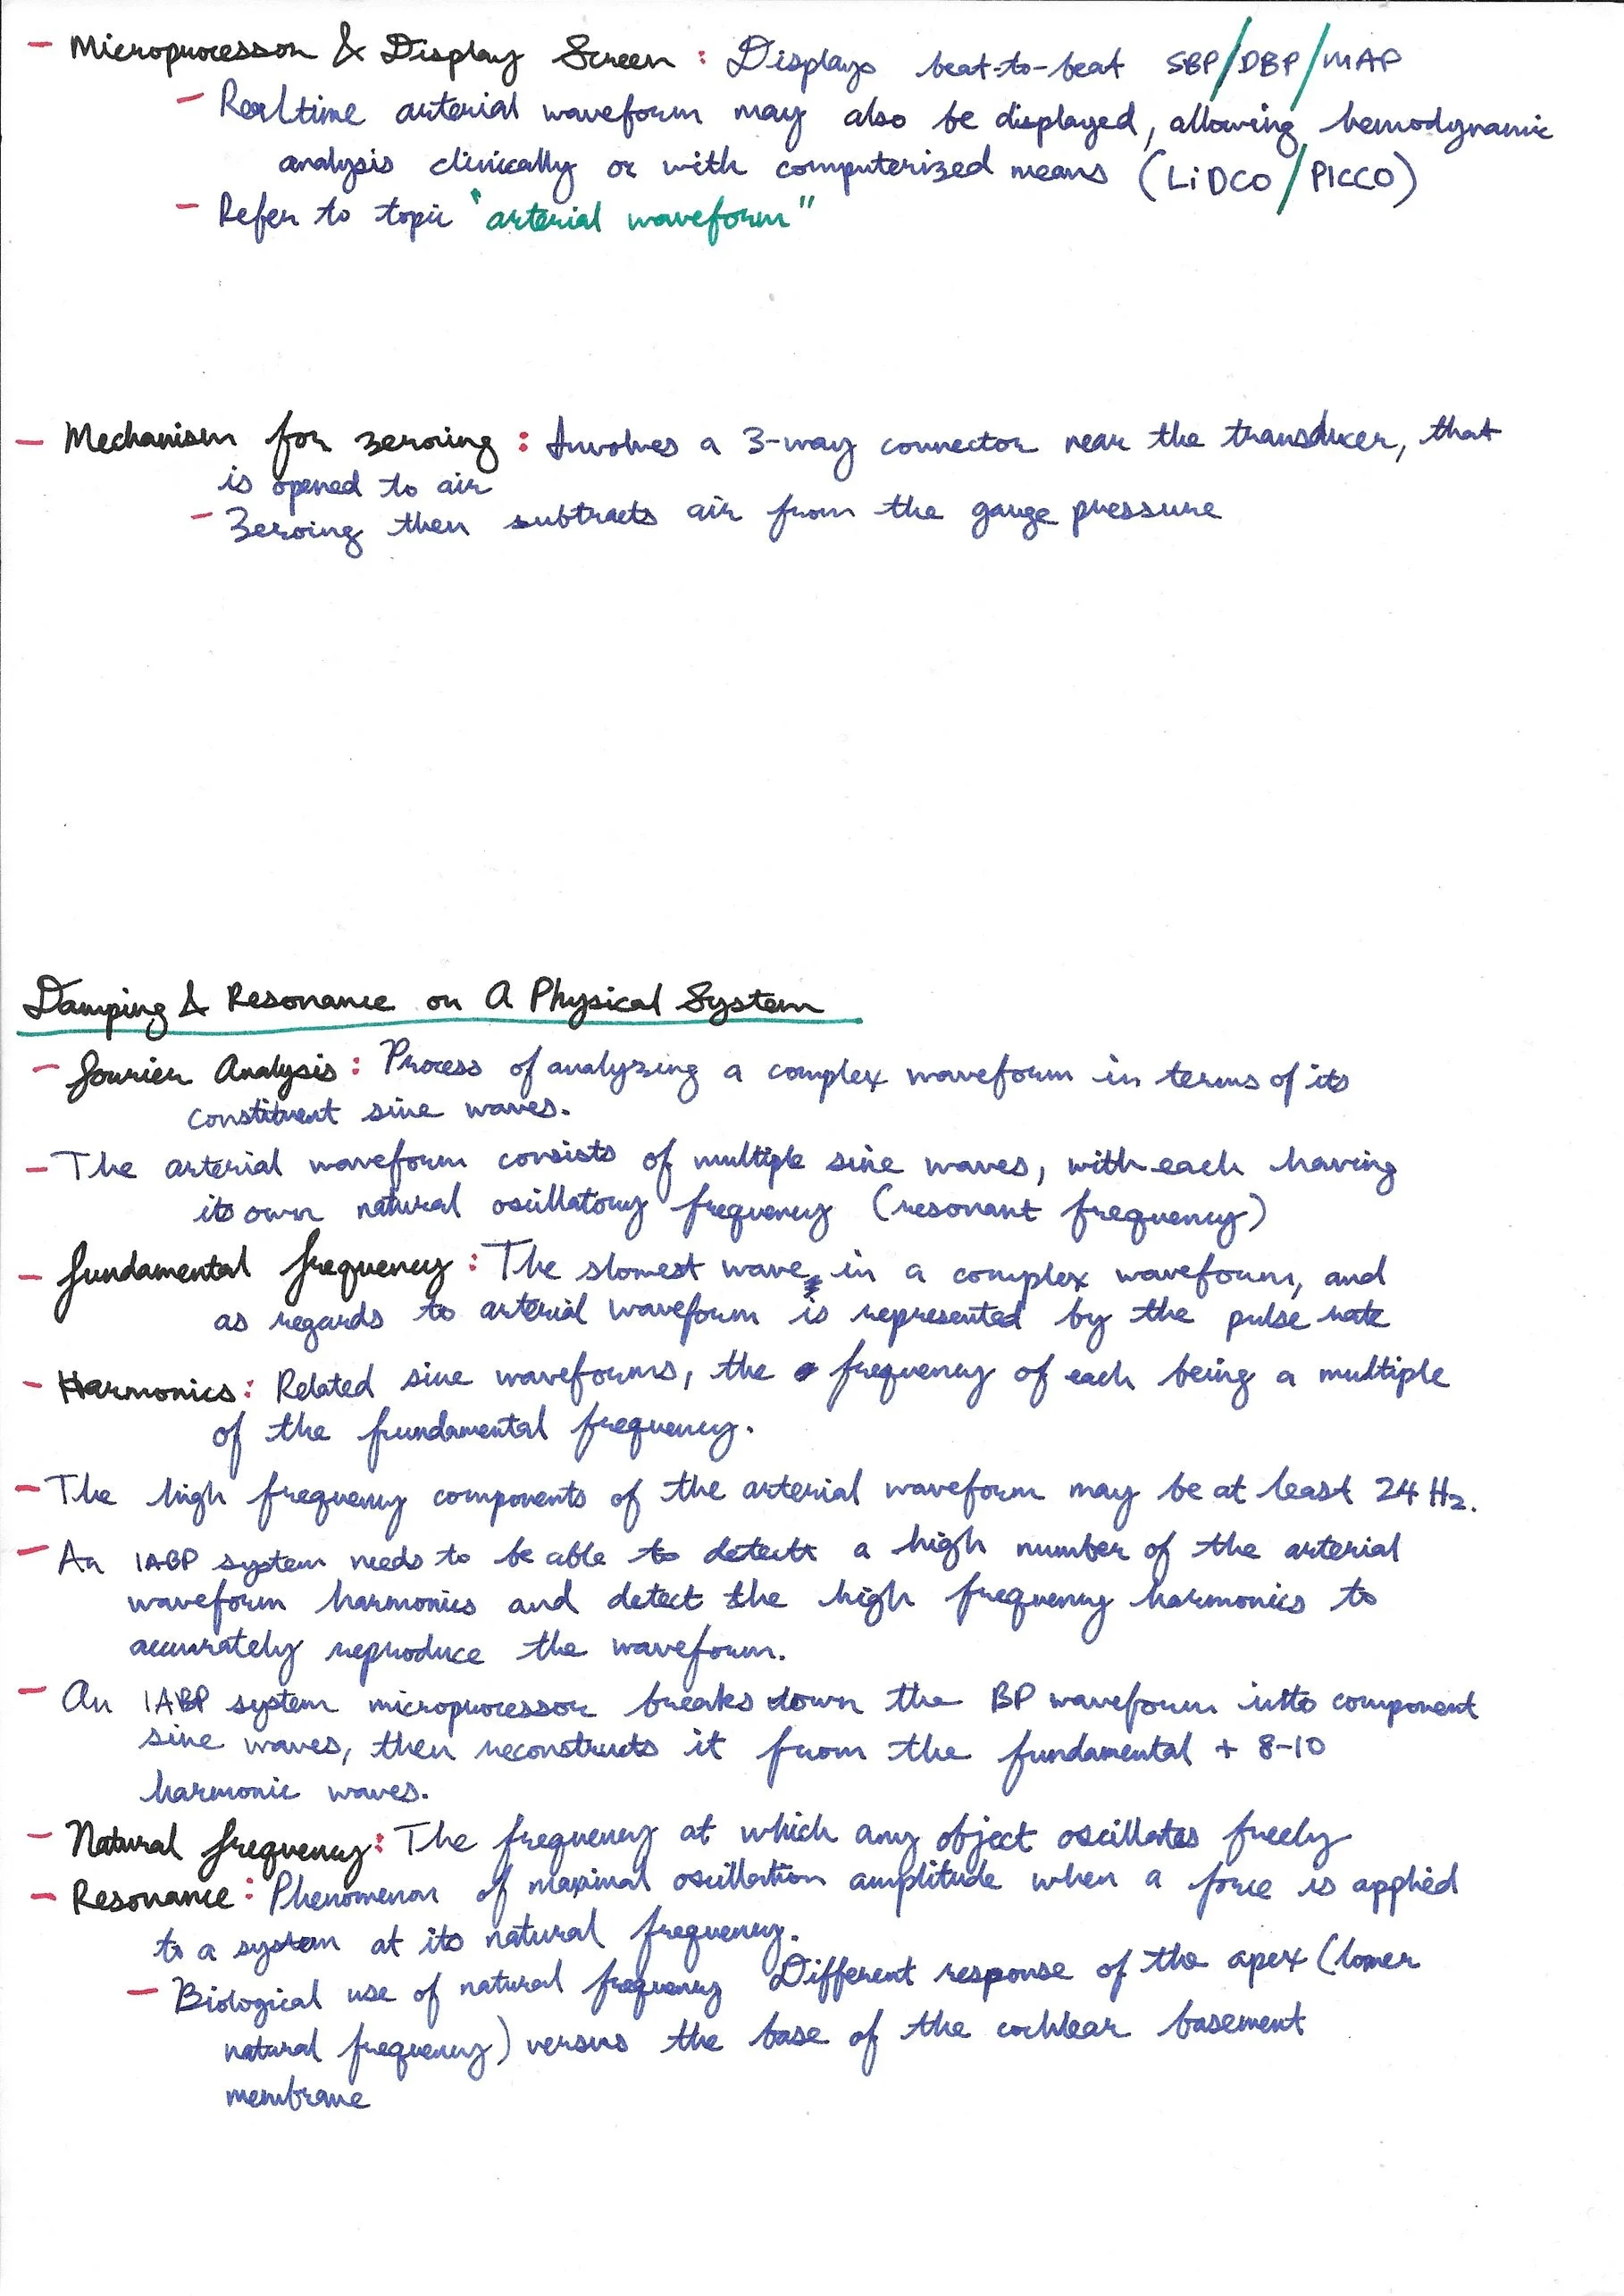 - Microprocessor & Display Screen : Displays beat-to-beat SBP/DBP/MAP
- Realtime arterial waveform may also be displayed, allowing hemodynamic
analysis clinically or with computerized means (LiDCO/PICCO)
- Refer to topic "arterial waveform"
- Mechanism for zeroing : Involves a 3-way connector near the transducer, that
is opened to air
- Zeroing then subtracts air from the gauge pressure
Damping & Resonance on A Physical System
- Fourier Analysis : Process of analyzing a complex waveform in terms of its
constituent sine waves.
- The arterial waveform consists of multiple sine waves, with each having
its own natural oscillatory frequency (resonant frequency)
- Fundamental frequency : The slowest wave in a complex waveform, and
as regards to arterial waveform is represented by the pulse rate
- Harmonics : Related sine waveforms, the frequency of each being a multiple
of the fundamental frequency.
- The high frequency components of the arterial waveform may be at least 24 Hz.
- An IABP system needs to be able to detect a high number of the arterial
waveform harmonics and detect the high frequency harmonics to
accurately reproduce the waveform.
- An IABP system microprocessor breaks down the BP waveform into component
sine waves, then reconstructs it from the fundamental + 8-10
harmonic waves.
- Natural frequency : The frequency at which any object oscillates freely
- Resonance : Phenomenon of maximal oscillation amplitude when a force is applied
to a system at its natural frequency.
- Biological use of natural frequency Different response of the apex (lower
natural frequency) versus the base of the cochlear basement
membrane